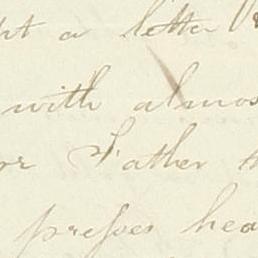 a letter
with almos
or Father
presses hea